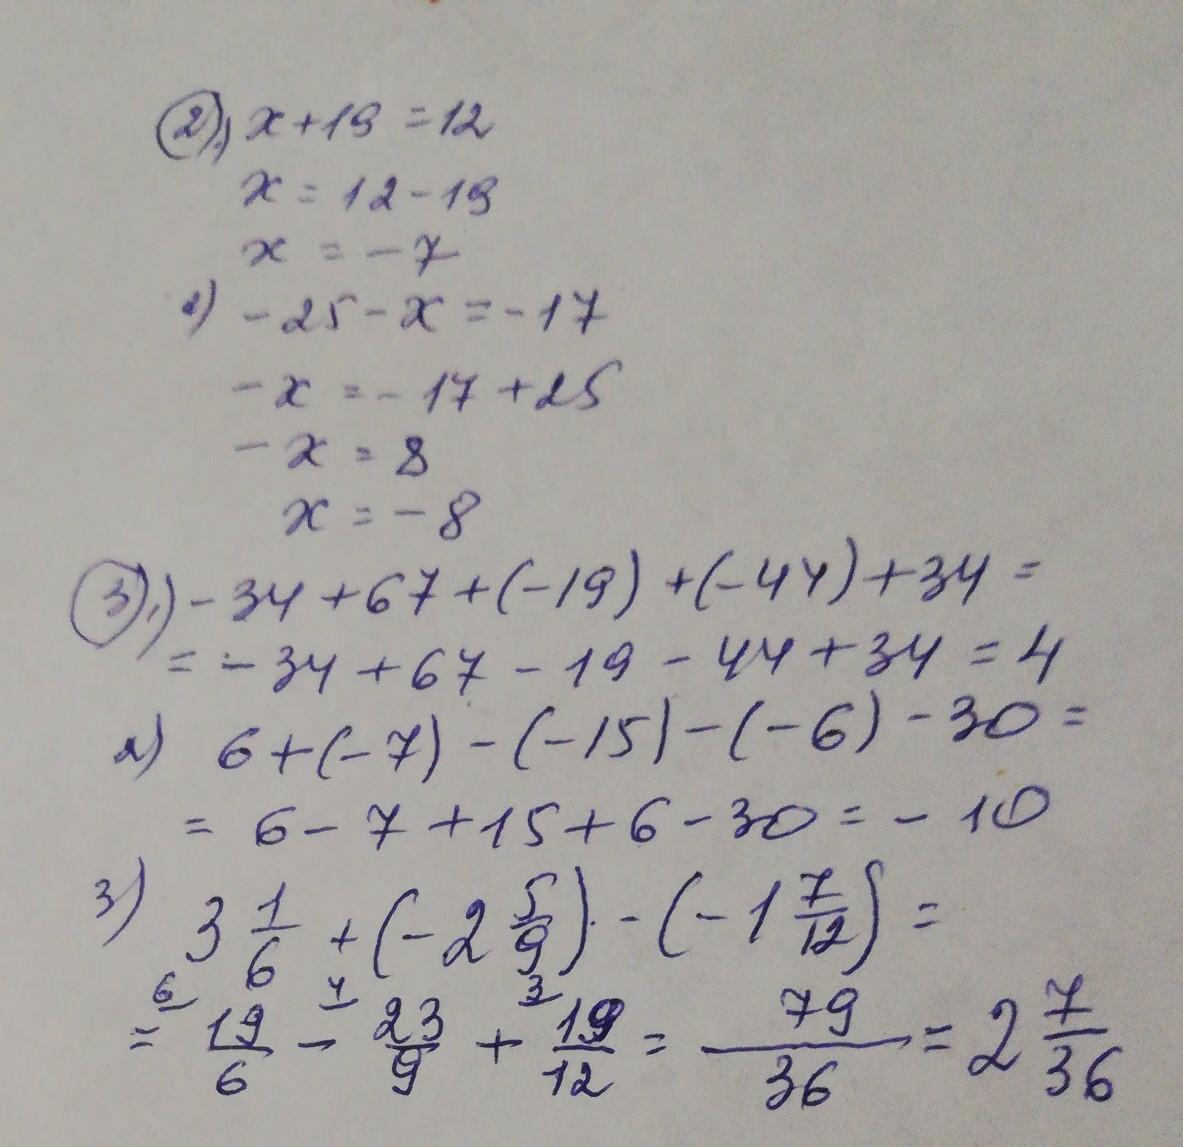 2) 1) x + 19 = 12
x = 12 - 19
x = - 7
2) - 25 - x = - 17
- x = - 17 + 25
- x = 8
x = - 8
3) 1) - 34 + 67 + (-19) + (-44) + 34 =
= - 34 + 67 - 19 - 44 + 34 = 4
2) 6 + (-7) - (-15) - (-6) - 30 =
= 6 - 7 + 15 + 6 - 30 = - 10
3) 3 1/6 + (-2 5/9) - (-1 7/12) =
= 6 19/6 - 4 23/9 + 3 19/12 = 79/36 = 2 7/36